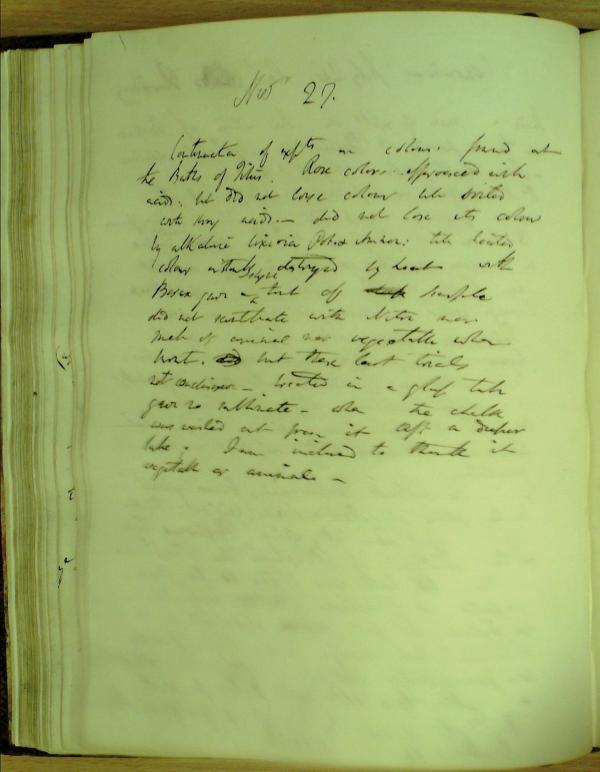 Novr 27.
Continuation of expts on colours found at
the Baths of Titus. Rose colors effervesced with
acids, but did not lose colour when boiled
with strong acids. - did not lose its colour
by alkaline lixivia Potex Ammon: till heated
colour destroyed by heat with
Borax gave a tint of purple
did not scintillate with Nitre nor
smell of animal nor vegetable when
burnt. but these last trials
not conclusive - heated in a glass tube
gave no sublimate - when the chalk
was washed out from it left a deeper
lake. I am inclined to think it
vegetable or animal -